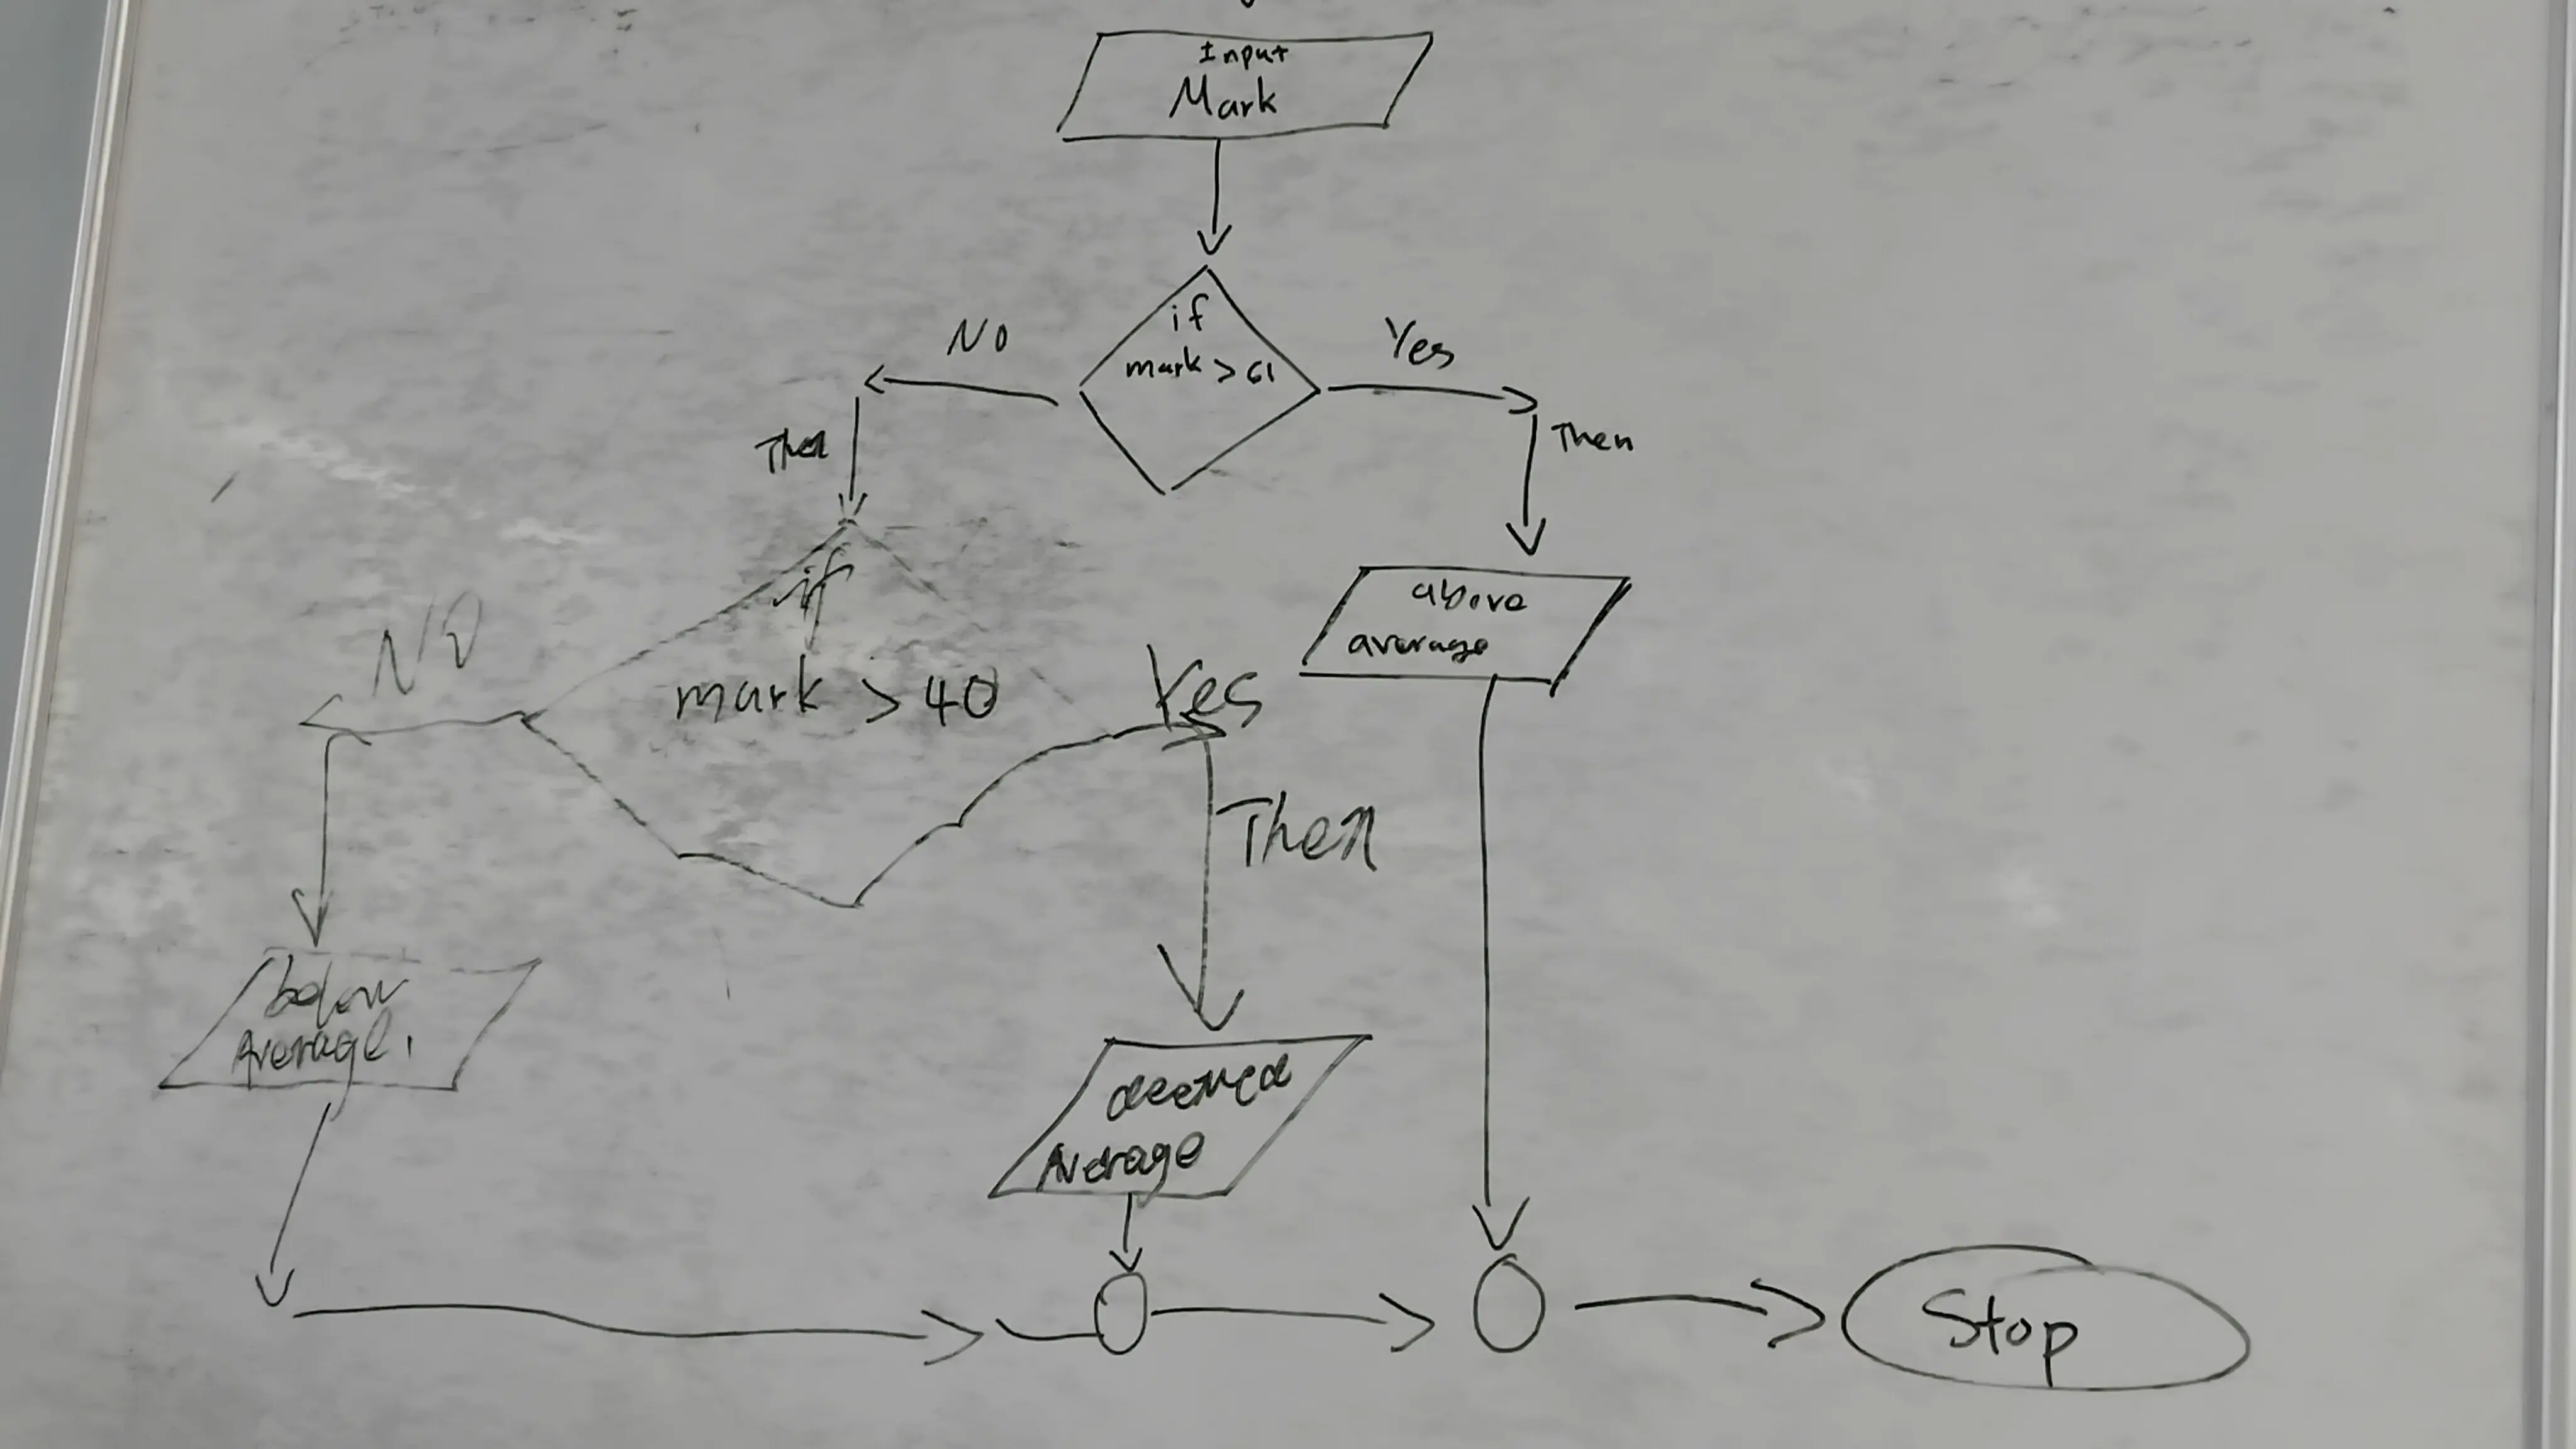 Input
Mark
if
mark > 61
No
Yes
Then
Then
if
mark > 40
above
average
No
Yes
Then
below
Average.
deemed
Average
Stop